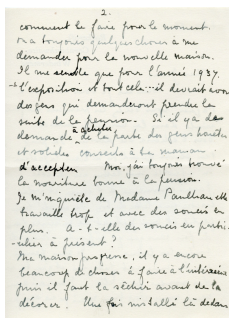 2.
comment le faire pour le moment.
on a toujours quelques choses à me
demander pour la nouvelle maison.
Il me semble que pour l'année 1937.
L'exposition et tout cela... il devrait avoir
des gens qui demanderont prendre la
suite de la pension. Si il y a de
demande à acheter de la parts des gens
et solides conseils à ta maman
d'accepter. Moi, j'ai toujours trouvé
la nourriture bonne à la pension.
Je m'inquiète de Madame Paulhan, elle
travaille trop et avec des soucis en
plus. A-t-elle des soucis en parti-
culier à présent?
Ma maison progresse, il y a encore
beaucoup de choses à faire à l'intérieur
puis il faut la sécher avant de la
décorer. Une fois installé là dedans